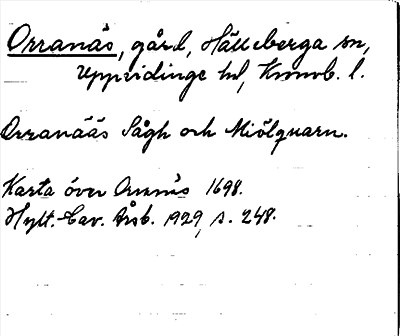 Orranäs, gård, Hälleberga sn,
Uppvidinge hd, Kronob. l.
Orranääs Sågh och Miölquarn.
Karta över Orranäs 1698.
Hylt.-Cav. Årsb. 1929, s. 248.